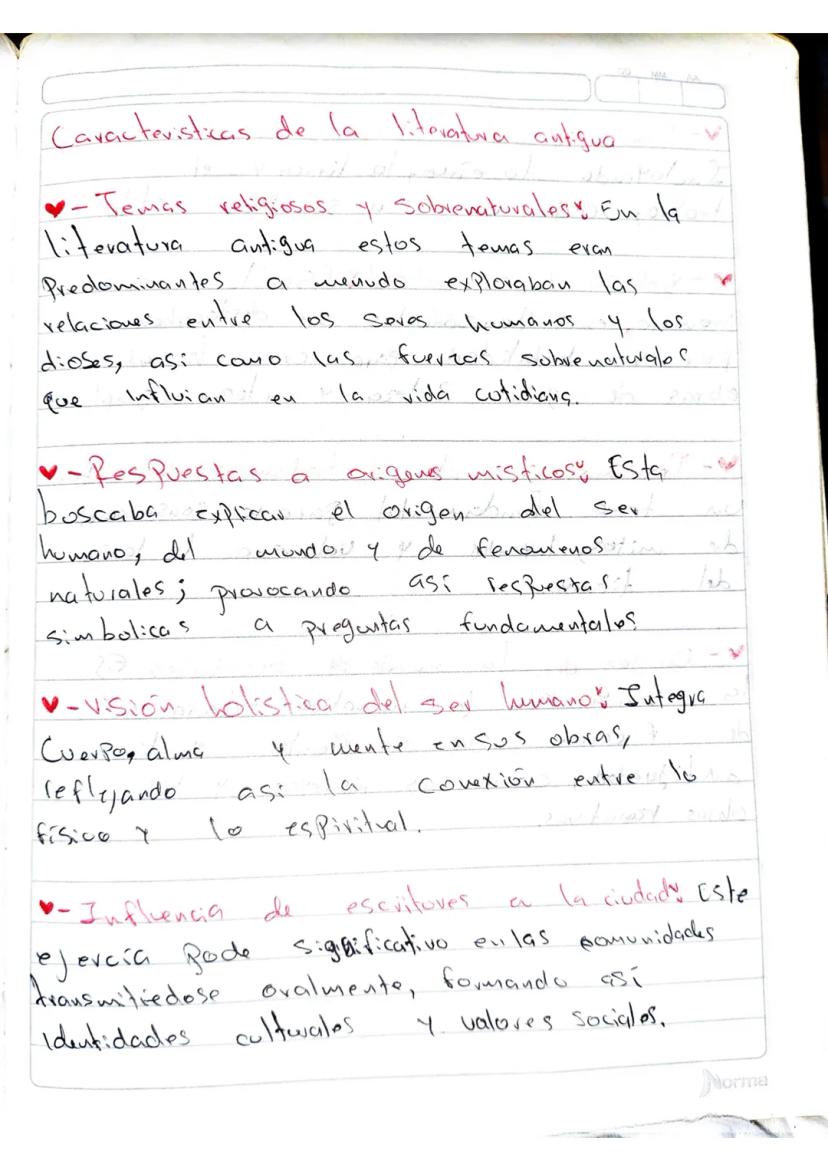 Caracteristicas de la literatura antigua
- Temas religiosos y Sobrenaturales: En la
literatura antigua estos temas eran
Predominantes a menudo exploraban las
relaciones entre los seres humanos y los
dioses, asi como las fuerzas sobrenaturales
que Influian en la vida cotidiana.
- Respuestas a origenes misticos: Esta
boscaba explicar el origen del ser
humano, del mundo y de fenomenos
naturales; provocando así respuestas
simbolicas a preguntas fundamentales
- visión holistica del ser humano: Integra
Cuerpo, alma y mente en sus obras,
reflejando asi la conexión entre lo
físico y lo espiritual.
- Influencia de escritores a la ciudad: Este
ejercía Pode significativo en las comunidades
transmitiedose oralmente, formando así
Identidades culturales y valores sociales.
Norma